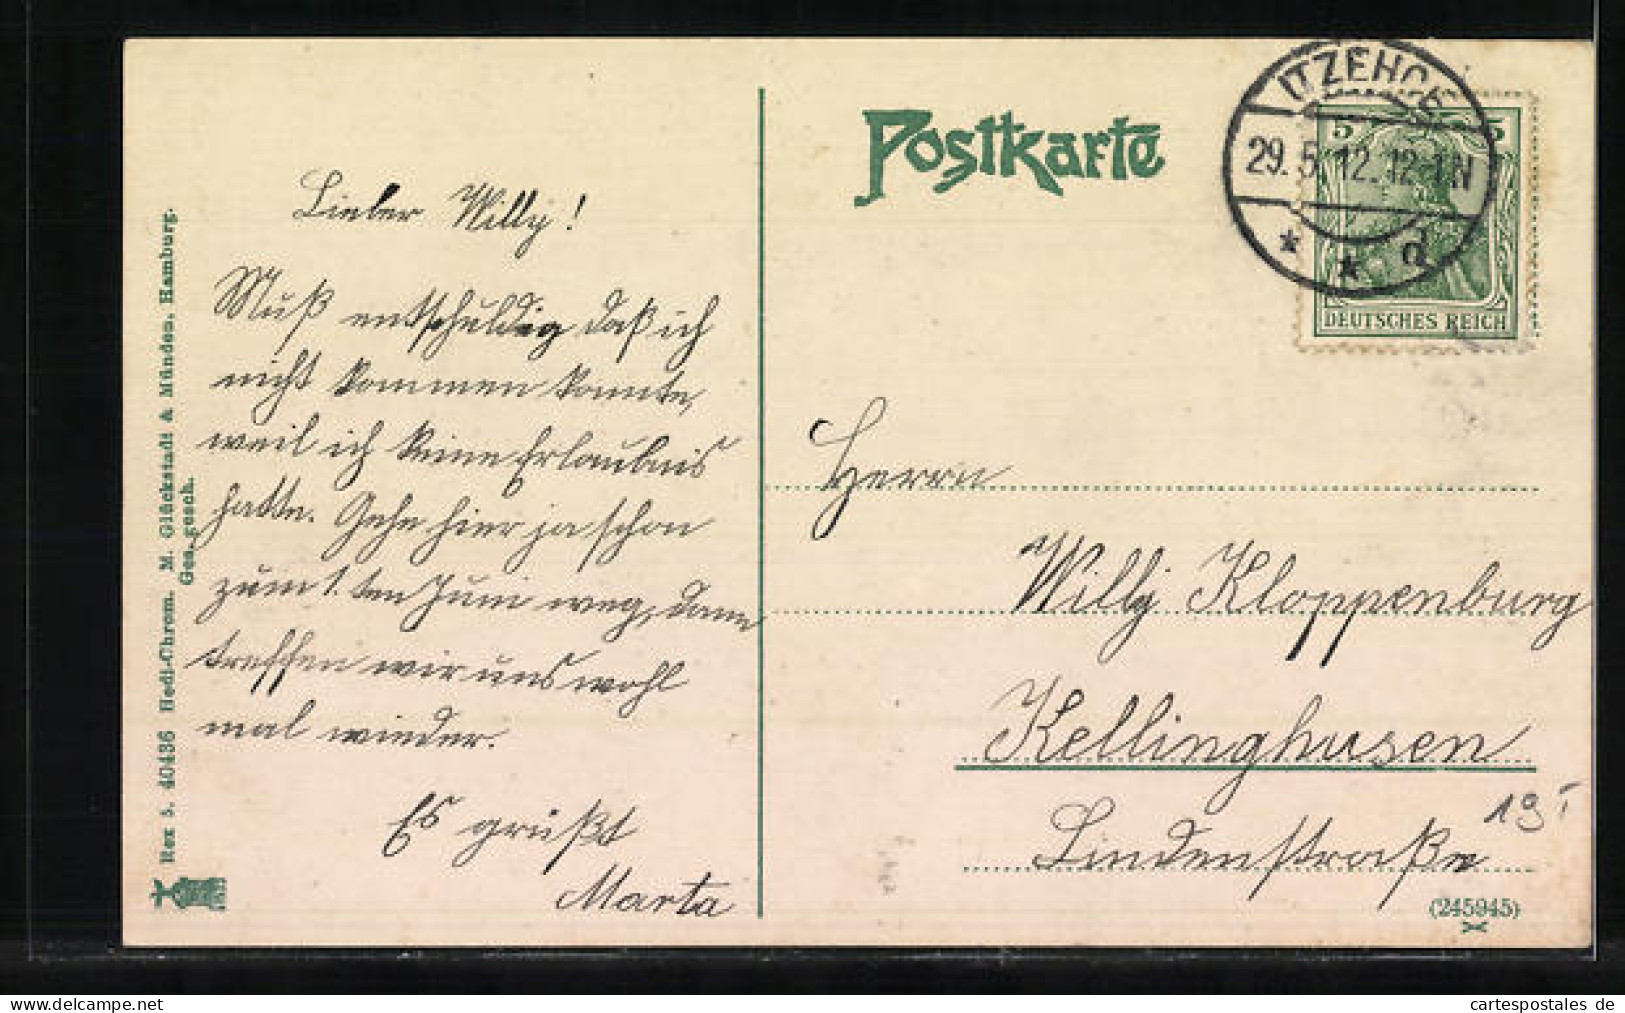 Lieber Willy!
Muß entschuldig daß ich
nicht kommen konnte,
weil ich keine Erlaubnis
hatte. Gehe hier ja schon
zum 1. ten Juni weg, dann
treffen wir uns wohl
mal wieder.
Es grüßt
Marta
Rex 5. 40436 Hedi-Chrom. M. Glückstadt & Münden, Hamburg.
Ges. gesch.
Postkarte
ITZEHOE
29.5.12.12-1N
* * d
5 5
DEUTSCHES REICH
Herrn
Willy Kloppenburg
Kellinghusen
Lindenstraße 19 I
(245945)
www.delcampe.net
cartespostales de